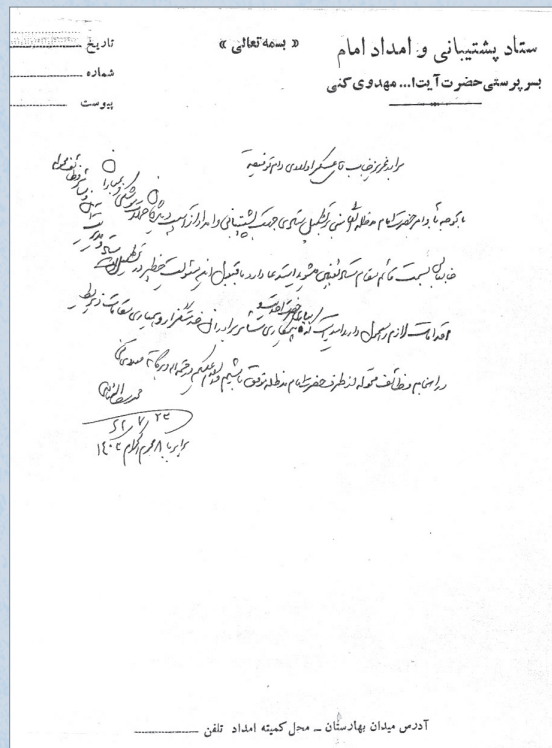 ستاد پشتیبانی و امداد امام
بسرپرستی حضرت آیت‌ا... مهدوی کنی
« بسمه تعالی »
تاریخ
شماره
پیوست
برادر عزیز جناب آقای عسکر اولادی دام توفیقه
با توجه با وامر حضرت امام مدظله مبنی بر تشکیل ستادی جهت پشتیبانی و امداد
جنابعالی بسمت قائم مقام ستاد تعیین میشوید استدعا دارد با قبول این مسئولیت خطیر در تشکیل ستاد
اقدامات لازم را معمول دارید امید است که با همکاری سایر برادران خدمتگزار و همیاری مقامات ذیربط
در انجام وظائف محوله از طرف حضرت امام مدظله موفق باشیم والسلام علیکم و رحمة الله و برکاته مهدوی کنی
۶۲/۷/۲۳
برابر با ۸ محرم الحرام ۱۴۰۴
آدرس میدان بهارستان ــ محل کمیته امداد تلفن